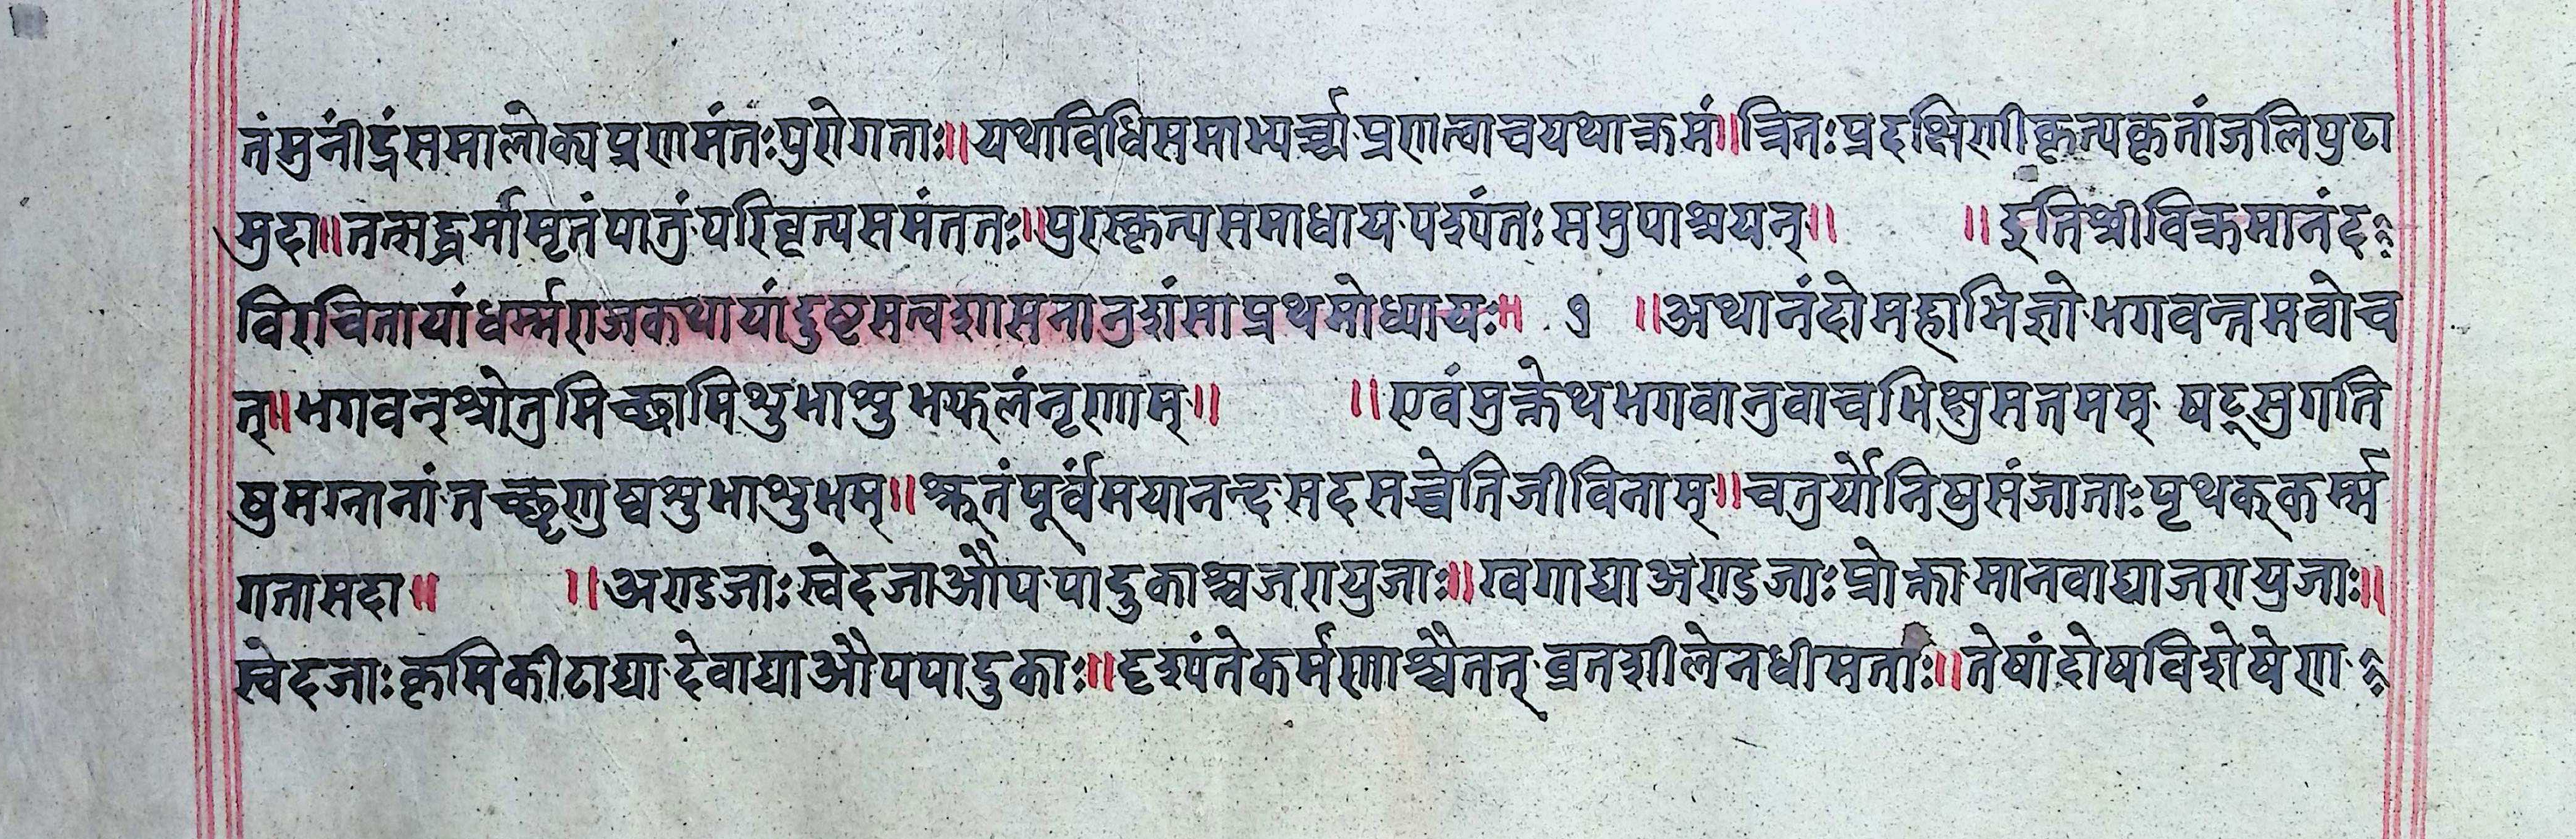 तंमुनींद्रंसमालोक्यप्रणमंतःपुरोगताः॥यथाविधिसमाभ्यर्च्चप्रणत्वाचयथाक्रमं॥त्रितःप्रदक्षिणीकृत्यकृतांजलिपुटा
मुदा॥तत्सद्धर्मामृतंपातुंपरिवृत्यसमंततः॥पुरस्कृत्यसमाधायपश्यंतःसमुपाश्रयन्॥ ॥इतिश्रीविक्रमानंद
विरचितायांधर्म्मराजकथायांदुष्टसत्वशासनानुशंसाप्रथमोध्यायः॥ १ ॥अथानंदोमहाभिज्ञोभगवन्तमवोच
त्॥भगवन्श्रोतुमिच्छामिशुभाशुभफलंनृणाम्॥ ॥एवंमुक्तेथभगवानुवाचभिक्षुसतमम् षट्सुगति
षुमग्नानांतच्छृणुष्वशुभाशुभम्॥श्रूतंपूर्वंमयानन्दसदसच्चेतिजीविनाम्॥चतुर्योनिषुसंजाताःपृथक्कर्म्म
गतासदा॥ ॥अण्डजाःस्वेदजाऔपपादुकाश्चजरायुजाः॥खगाद्याअण्डजाःप्रोक्तामानवाद्याजरायुजाः॥
स्वेदजाःकृमिकीटाद्यादेवाद्याऔपपादुकाः॥दृश्यंतेकर्मणाश्चैतत्व्रतशीलेनधीमताः॥तेषांदोषविशेषेण